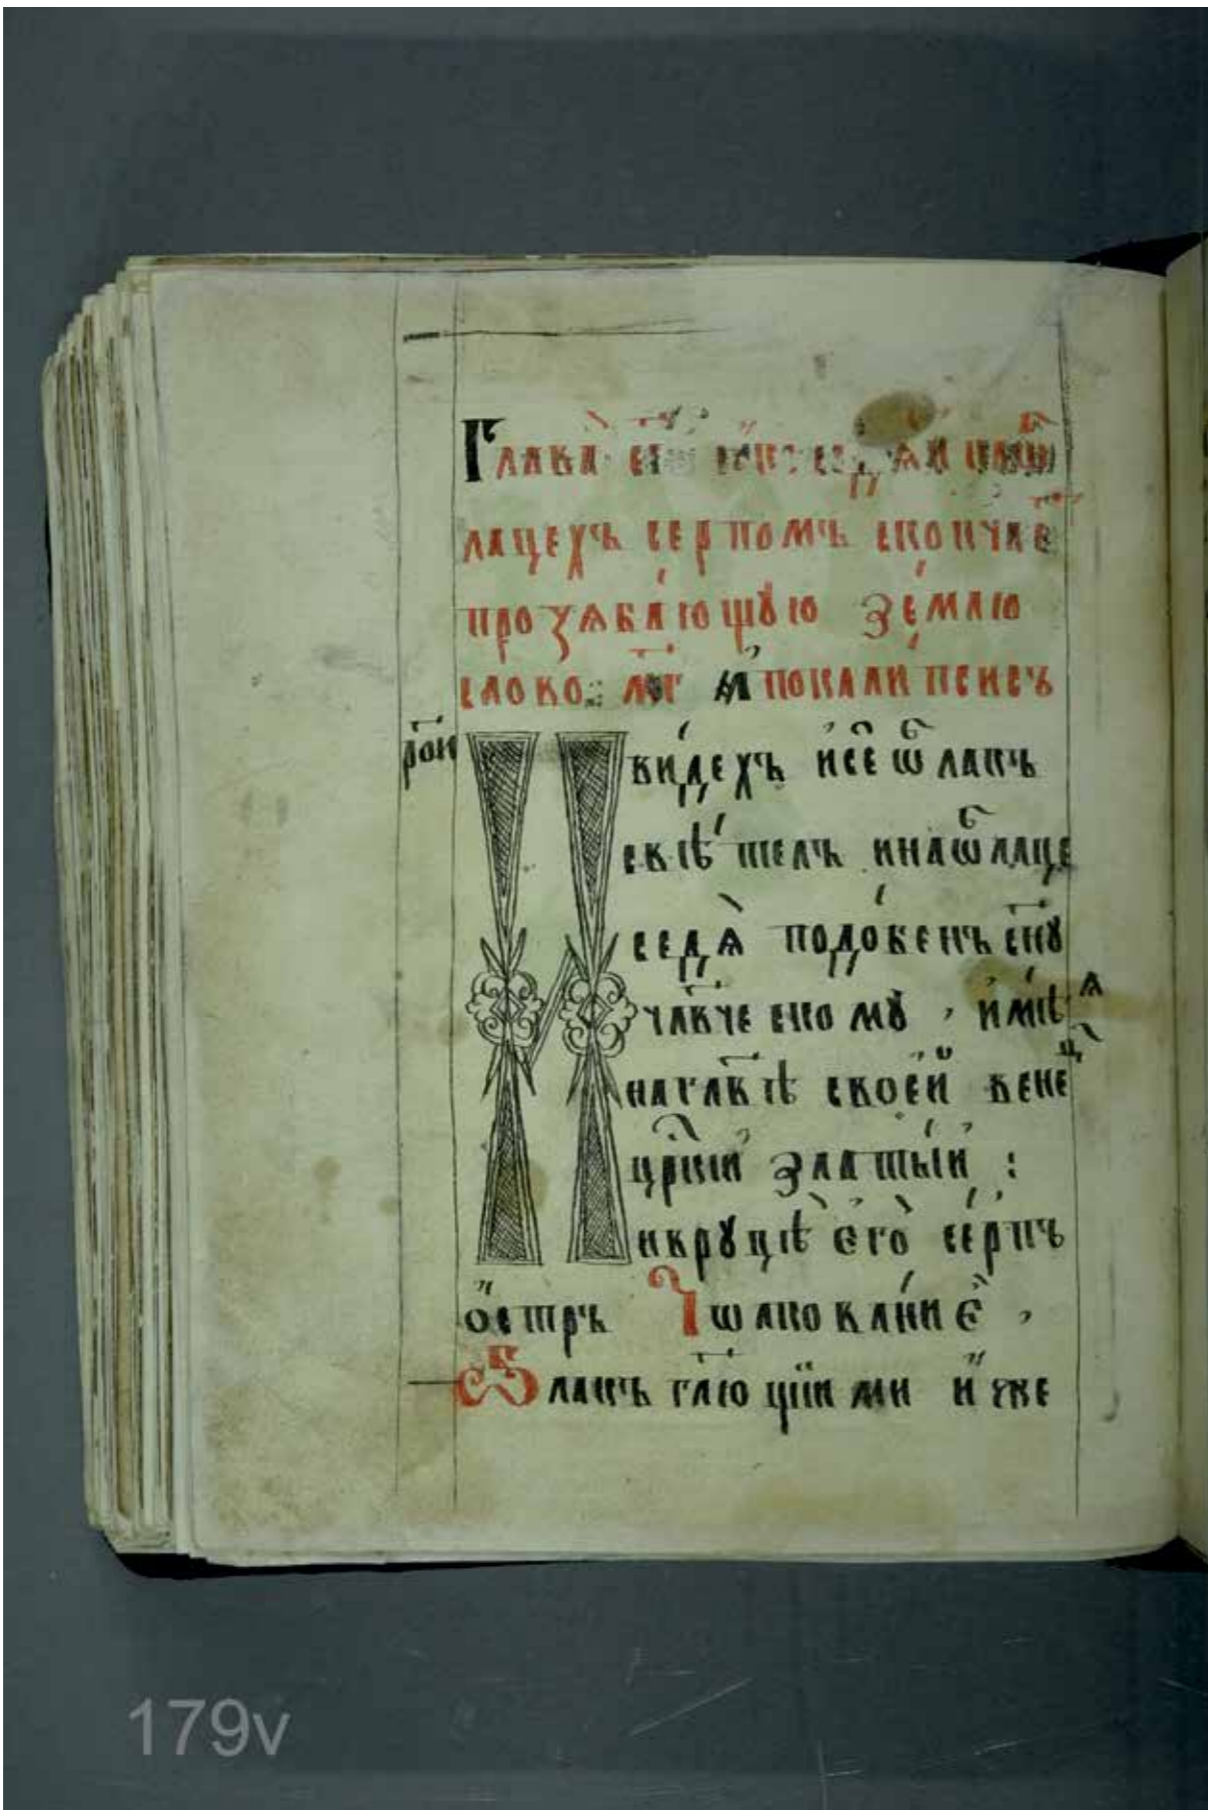 Глава седѧй
лацехъ серпомъ скончае
прозѧбающꙋю землю
слово мг апокалипсисъ
рои
И видехъ и се ѡблакъ
свѣтелъ и на ѡблаце
седѧ подобенъ сн҃ꙋ
чл҃вческомꙋ , имѣѧ
на гл҃авѣ своей венец
цр҃кий златый :
и в рꙋцѣ его серпъ
остръ Їѡлкованиє ,
Ѡблакъ гл҃ющїи ми иже
179v